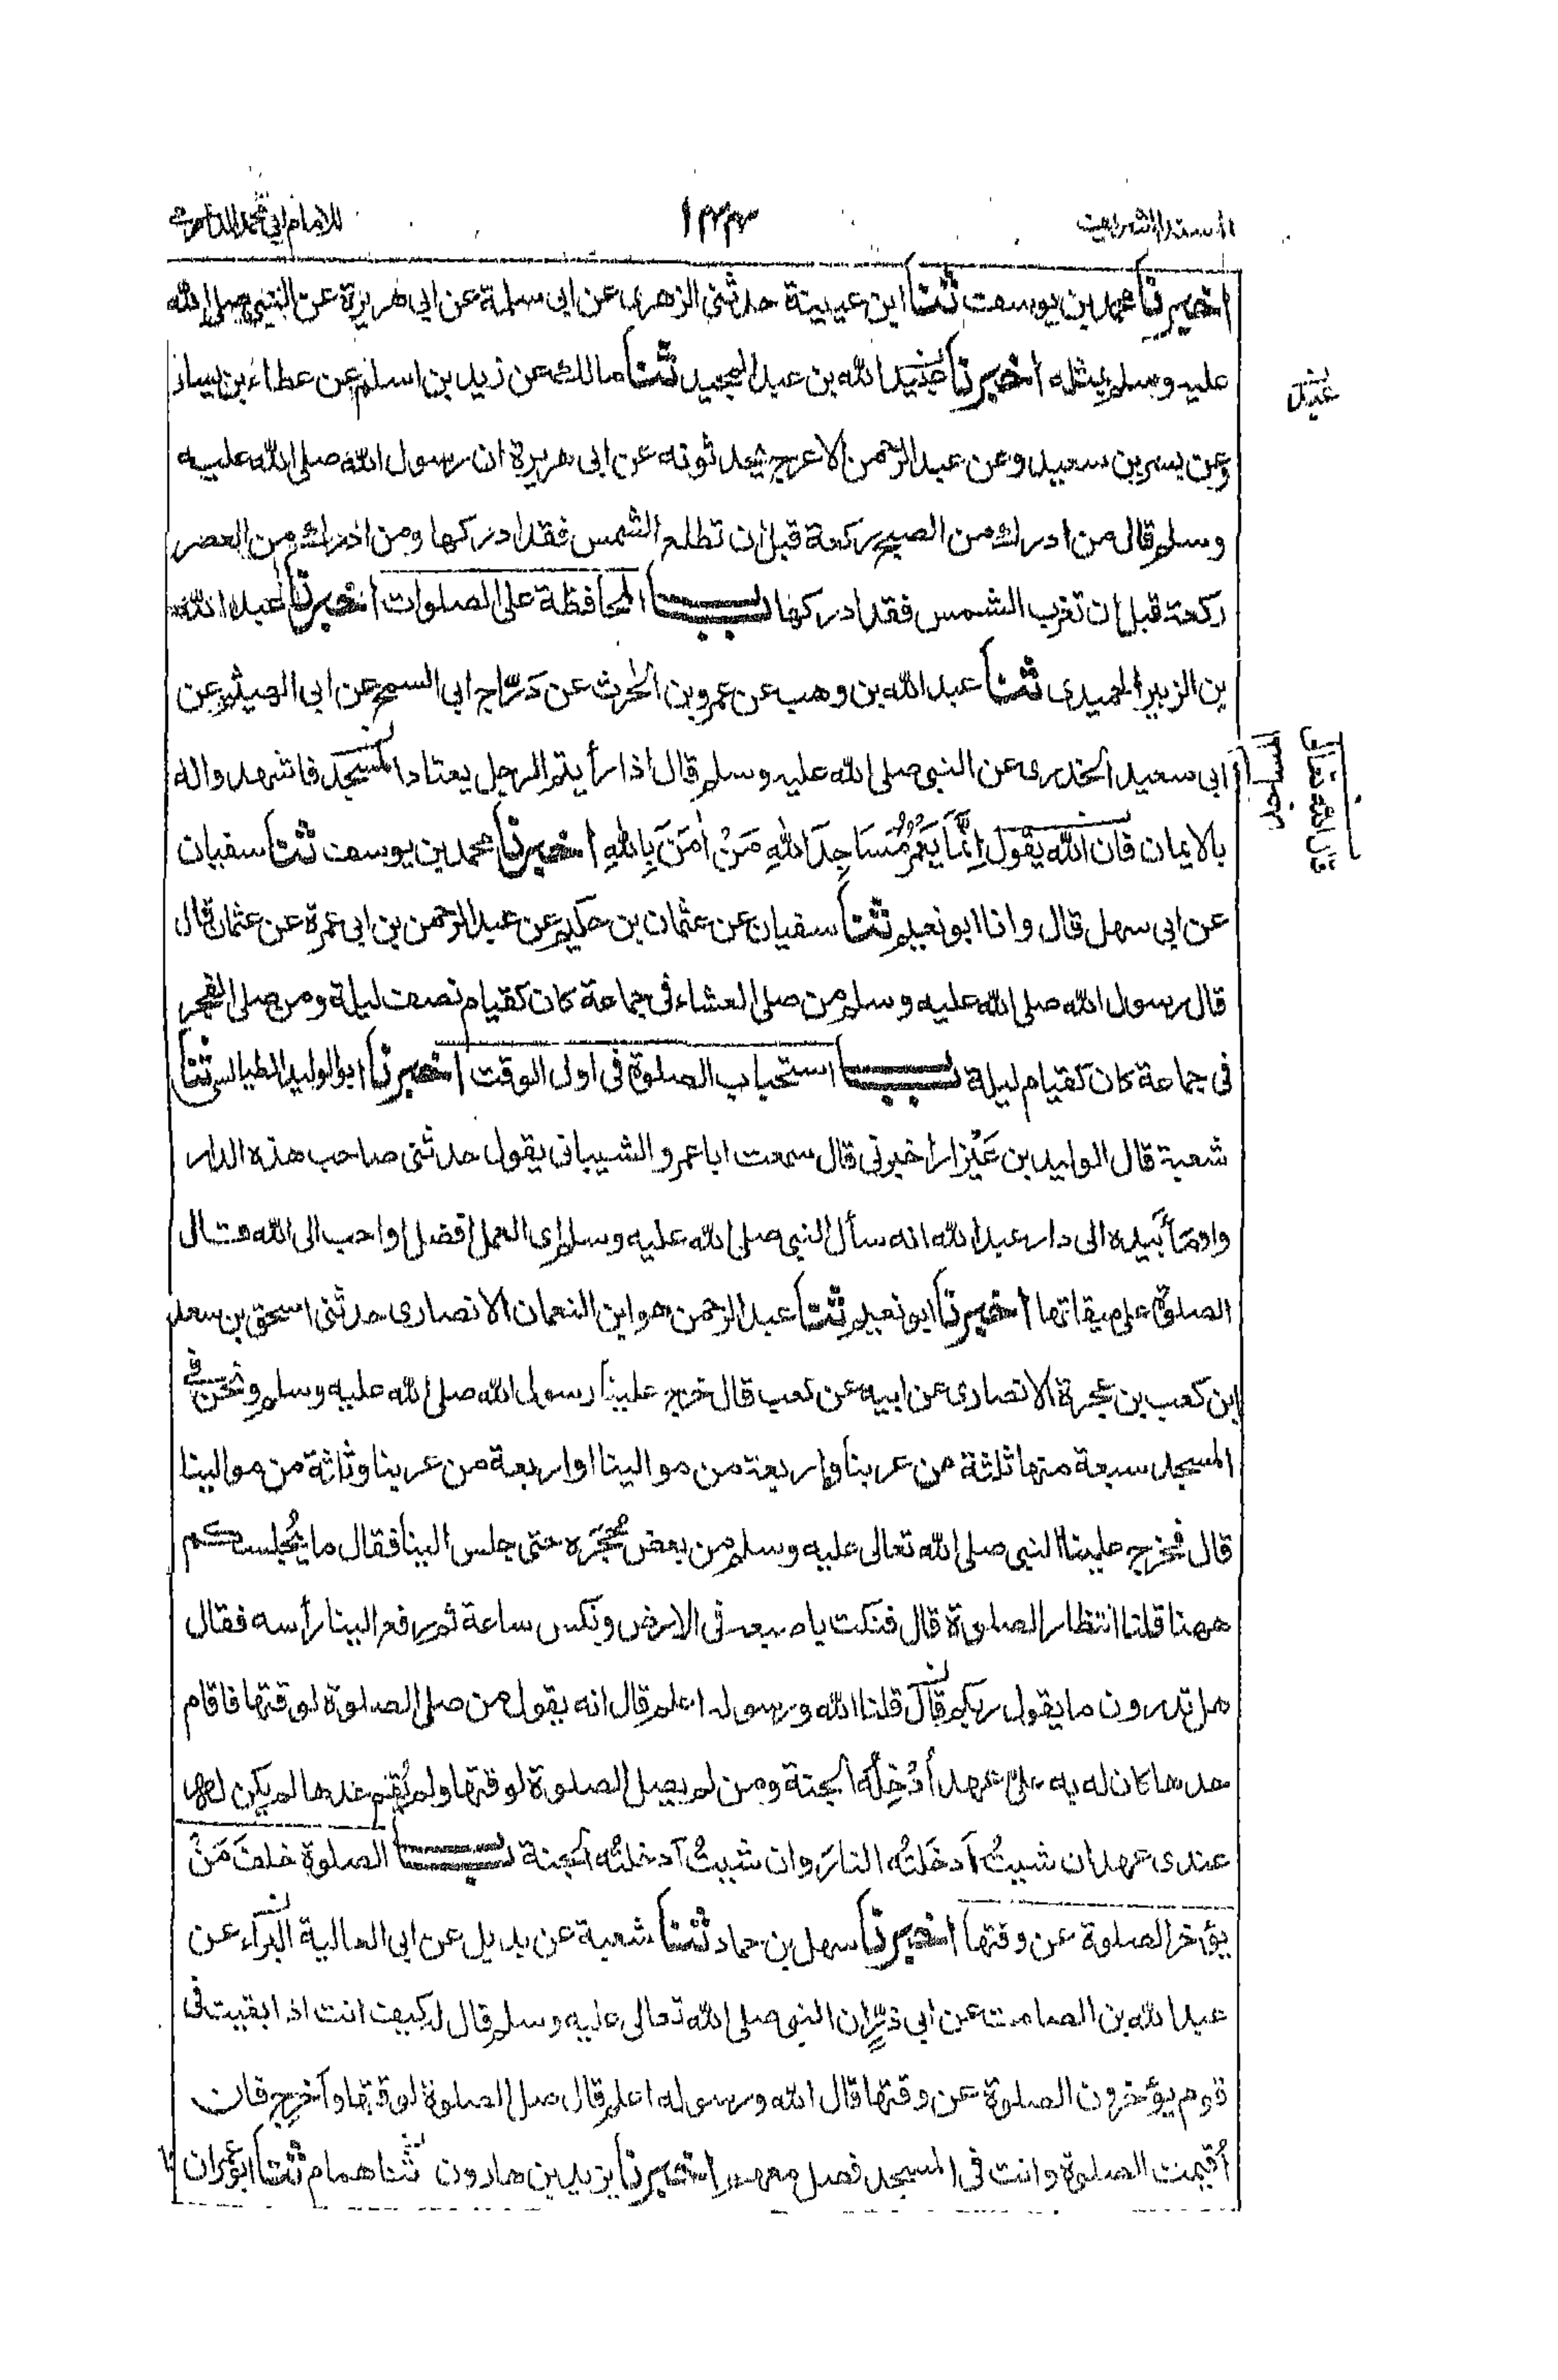 المسند الشريف ١٤٣ للامام ابي محمد الدارمي
اخبرنا محمد بن يوسف ثنا ابن عيينة حدثنى الزهرى عن ابى سلمة عن ابى هريرة عن النبى صلى الله
عليه وسلم بمثله اخبرنا عبيد الله بن عبد المجيد ثنا مالك عن زيد بن اسلم عن عطاء بن يسار
وعن بسر بن سعيد وعن عبد الرحمن الاعرج يحدثونه عن ابى هريرة ان رسول الله صلى الله عليه
وسلم قال من ادرك من الصبح ركعة قبل ان تطلع الشمس فقد ادركها ومن ادرك من العصر
ركعة قبل ان تغرب الشمس فقد ادركها باب المحافظة على الصلوات اخبرنا عبد الله
بن الزبير الحميدى ثنا عبد الله بن وهب عن عمرو بن الحرث عن دَرّاج ابى السمح عن ابى الهيثم عن
ابى سعيد الخدرى عن النبى صلى الله عليه وسلم قال اذا رأيتم الرجل يعتاد المسجد فاشهدوا له
بالايمان فان الله يقول اِنَّمَا يَعْمُرُ مَسَاجِدَ اللهِ مَنْ اٰمَنَ بِاللهِ اخبرنا محمد بن يوسف ثنا سفيان
عن ابى سهل قال وانا ابو نعيم ثنا سفيان عن عثمان بن حكيم عن عبد الرحمن بن ابى عمرة عن عثمان قال
قال رسول الله صلى الله عليه وسلم من صلى العشاء فى جماعة كان كقيام نصف ليلة ومن صلى الفجر
فى جماعة كان كقيام ليلة باب استحباب الصلوة فى اول الوقت اخبرنا ابو الوليد الطيالسى ثنا
شعبة قال الوليد بن عَيْزار اخبرنى قال سمعت ابا عمرو الشيبانى يقول حدثنى صاحب هذه الدار
واومأ بيده الى دار عبد الله انه سأل النبى صلى الله عليه وسلم اى العمل افضل او احب الى الله قال
الصلوة على ميقاتها اخبرنا ابو نعيم ثنا عبد الرحمن هو ابن النعمان الانصارى حدثنى اسحق بن سعد
ابن كعب بن عجرة الانصارى عن ابيه عن كعب قال خرج علينا رسول الله صلى الله عليه وسلم ونحن فى
المسجد سبعة منها ثلثة من عربنا واربعة من موالينا او اربعة من عربنا وثلثة من موالينا
قال فخرج علينا النبى صلى الله تعالى عليه وسلم من بعض حُجَرِه حتى جلس الينا فقال ما يُجلسكم
ههنا قلنا انتظار الصلوة قال فنكت باصبعه فى الارض ونكس ساعة ثم رفع الينا رأسه فقال
هل تدرون ما يقول ربكم قال قلنا الله ورسوله اعلم قال انه يقول من صلى الصلوة لوقتها فاقام
حدها كان له به على عهد أُدْخِلُه الجنة ومن لم يصل الصلوة لوقتها ولم يُقِم حدها لم يكن له
عندى عهد ان شئتُ اَدخَلتُه النارَ وان شئتُ اَدخلتُه الجنة باب الصلوة خلفَ مَنْ
يؤخر الصلوة عن وقتها اخبرنا سهل بن حماد ثنا شعبة عن بديل عن ابى العالية البَرّاء عن
عبد الله بن الصامت عن ابى ذرٍّ ان النبى صلى الله تعالى عليه وسلم قال له كيف انت اذا بقيت فى
قوم يؤخرون الصلوة عن وقتها قال الله ورسوله اعلم قال صل الصلوة لوقتها واخرج فان
أُقيمت الصلوة وانت فى المسجد فصل معهم اخبرنا يزيد بن هارون ثنا همام ثنا ابو عمران
قال الله تعالى